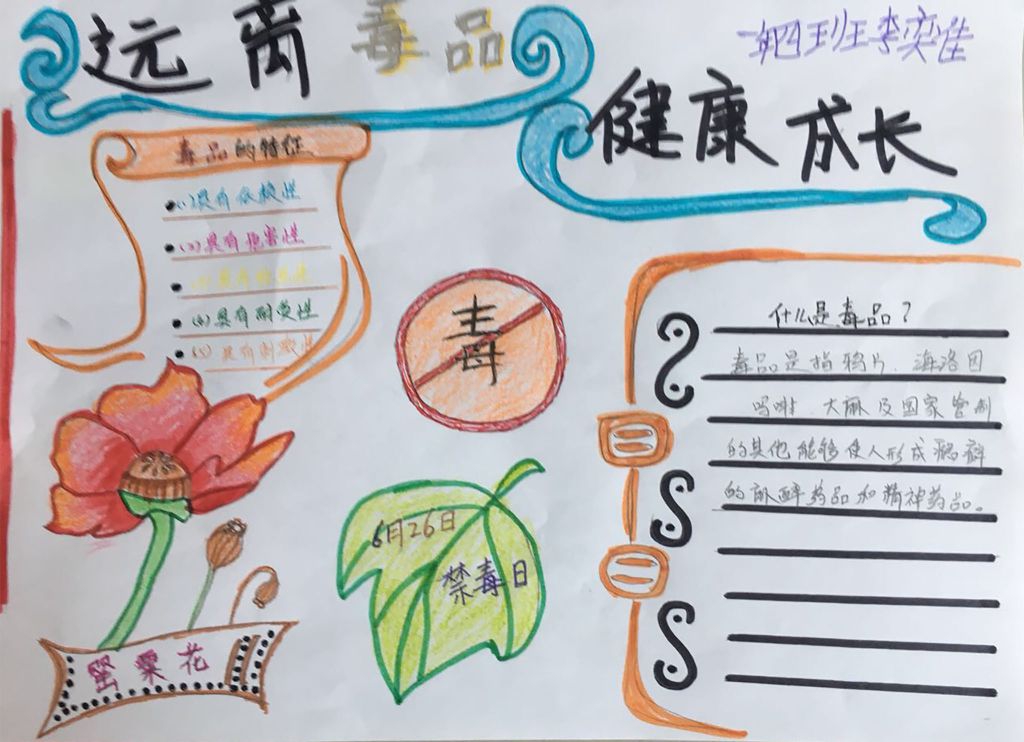 远离毒品
一年四班李奕佳
健康成长
毒品的特征
(1)具有依赖性
(2)具有危害性
(4)具有耐受性
(5)具有刺激性
毒
什么是毒品?
毒品是指鸦片、海洛因
吗啡、大麻及国家管制
的其他能够使人形成瘾癖
的麻醉药品和精神药品。
三
二
6月26日
禁毒日
罂粟花